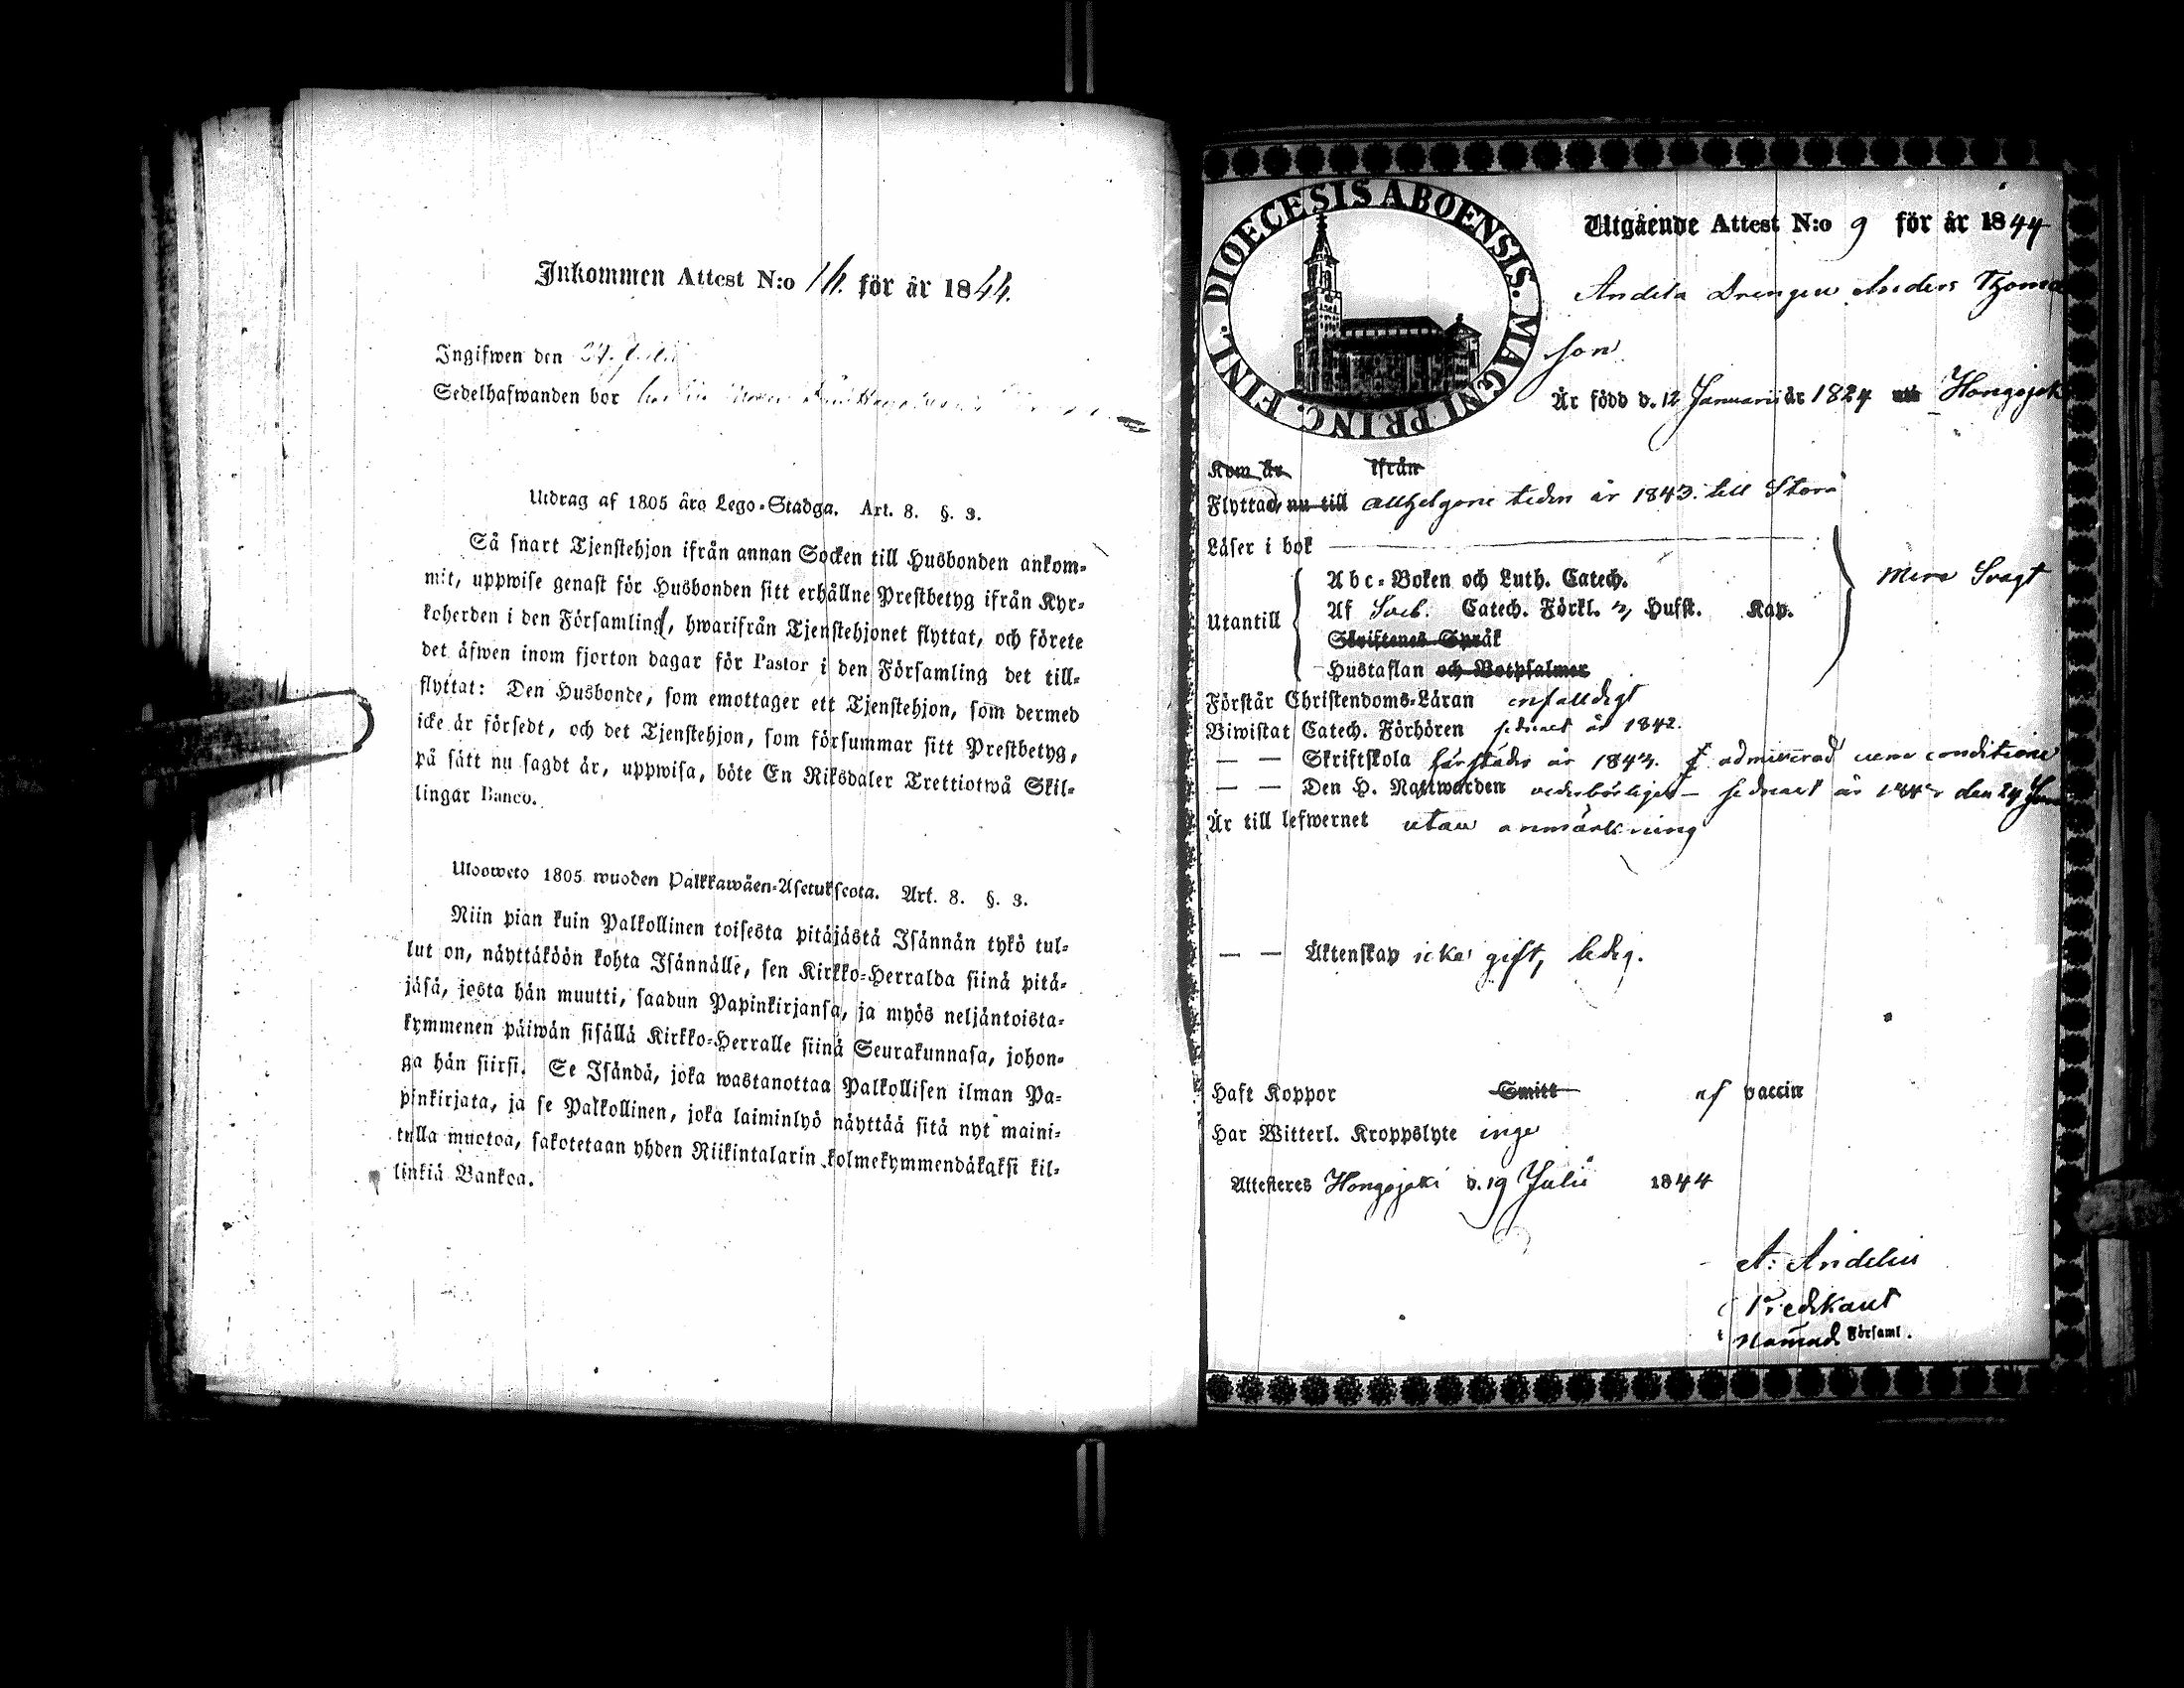 Inkommen Attest N:o 14. för år 1844.
Ingifwen den 27. Juli
Sedelhafwanden bor
Utdrag af 1805 års Lego-Stadga. Art. 8. §. 3.
Så snart Tjenstehjon ifrån annan Socken till Husbonden ankom-
mit, uppwise genast för Husbonden sitt erhållne Prestbetyg ifrån Kyr-
koherden i den Församling, hwarifrån Tjenstehjonet flyttat, och förete
det äfwen inom fjorton dagar för Pastor i den Församling det till-
flyttat: Den Husbonde, som emottager ett Tjenstehjon, som dermed
icke är försedt, och det Tjenstehjon, som försummar sitt Prestbetyg,
på sätt nu sagdt är, uppwisa, böte En Riksdaler Trettiotwå Skil-
lingar Banco.
Ulosweto 1805 wuoden Palkkawäen-Asetuksesta. Art. 8. §. 3.
Niin pian kuin Palkollinen toisesta pitäjästä Isännän tykö tul-
lut on, näyttäköön kohta Isännälle, sen Kirkko-Herralda siinä pitä-
jäsä, josta hän muutti, saadun Papinkirjansa, ja myös neljäntoista-
kymmenen päiwän sisällä Kirkko-Herralle siinä Seurakunnasa, johon-
ga hän siirsi. Se Isändä, joka wastanottaa Palkollisen ilman Pa-
pinkirjata, ja se Palkollinen, joka laiminlyö näyttää sitä nyt maini-
tulla muotoa, sakotetaan yhden Riikintalarin kolmekymmendäkaksi kil-
linkiä Bankoa.
DIOECESIS ABOENSIS. MAGNI PRINC. FINL.
Utgående Attest N:o 9 för år 1844
Drengen Anders Thoma
son
Är född d. 12 Januarii år 1824 uti Hongojoki
Kom år ifrån
Flyttad, nu till allhelgone tiden år 1843. till Storå
Läser i bok
Abc-Boken och Luth. Catech.
Utantill Af Sveb. Catech. Förkl. Husst. Kap. mera Svagt
Skriftenes Språk
Hustaflan och Botpsalmer
Förstår Christendoms-Läran enfaldigt
Biwistat Catech. Förhören sednast år 1842.
— — Skriftskola härstädes år 1843. admitterad conditione
— — Den H. Nattwarden wederbörligen – sednast år den 24
Är till lefwernet utan anmärkning
— — Äktenskap icke gift, ledig.
Haft Koppor Smitt af vaccin
Har Witterl. Kroppslyte inge
Attesteres Hongojoki d. 19 Julii 1844
A: Andelin
Predikant
i Församl.